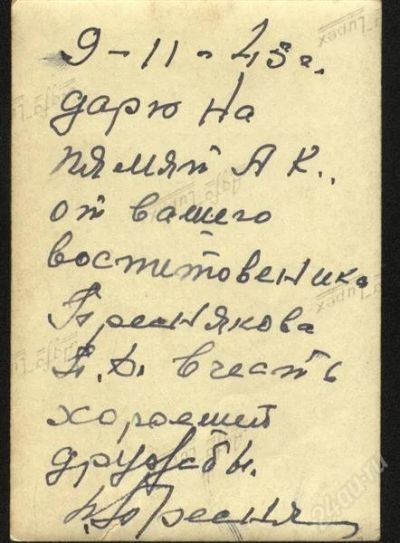 9-11-45г.
дарю на
пямят А К.,
от вашего
воститовеника
Преснякова
П.Д. в честь
хорошей
дружбы.
24au.ru